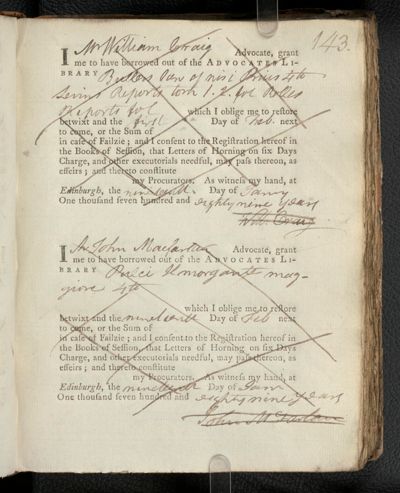 143.
I Mr William Craig Advocate, grant
me to have borrowed out of the ADVOCATES LI-
BRARY Bullers Law of nisi Prius 4to
Levinz Reports both 1. 2. vol Rolles
Reports vol which I oblige me to reſtore
betwixt and the first Day of Feb. next
to come, or the Sum of
in caſe of Failzie; and I conſent to the Regiſtration hereof in
the Books of Seſſion, that Letters of Horning on ſix Days
Charge, and other executorials needful, may paſs thereon, as
effeirs; and thereto conſtitute
my Procurators. As witneſs my hand, at
Edinburgh, the Day of Janry
One thouſand ſeven hundred and eighty nine years
Wm. Craig
I Mr John Macfarlan Advocate, grant
me to have borrowed out of the ADVOCATES LI-
BRARY Pulci Il morgante mag-
giore 4to
which I oblige me to reſtore
betwixt and the nineteenth Day of Feb next
to come, or the Sum of
in caſe of Failzie; and I conſent to the Regiſtration hereof in
the Books of Seſſion, that Letters of Horning on ſix Days
Charge, and other executorials needful, may paſs thereon, as
effeirs; and thereto conſtitute
my Procurators. As witneſs my hand, at
Edinburgh, the nineteenth Day of Janry
One thouſand ſeven hundred and eighty nine years
John McFarlan